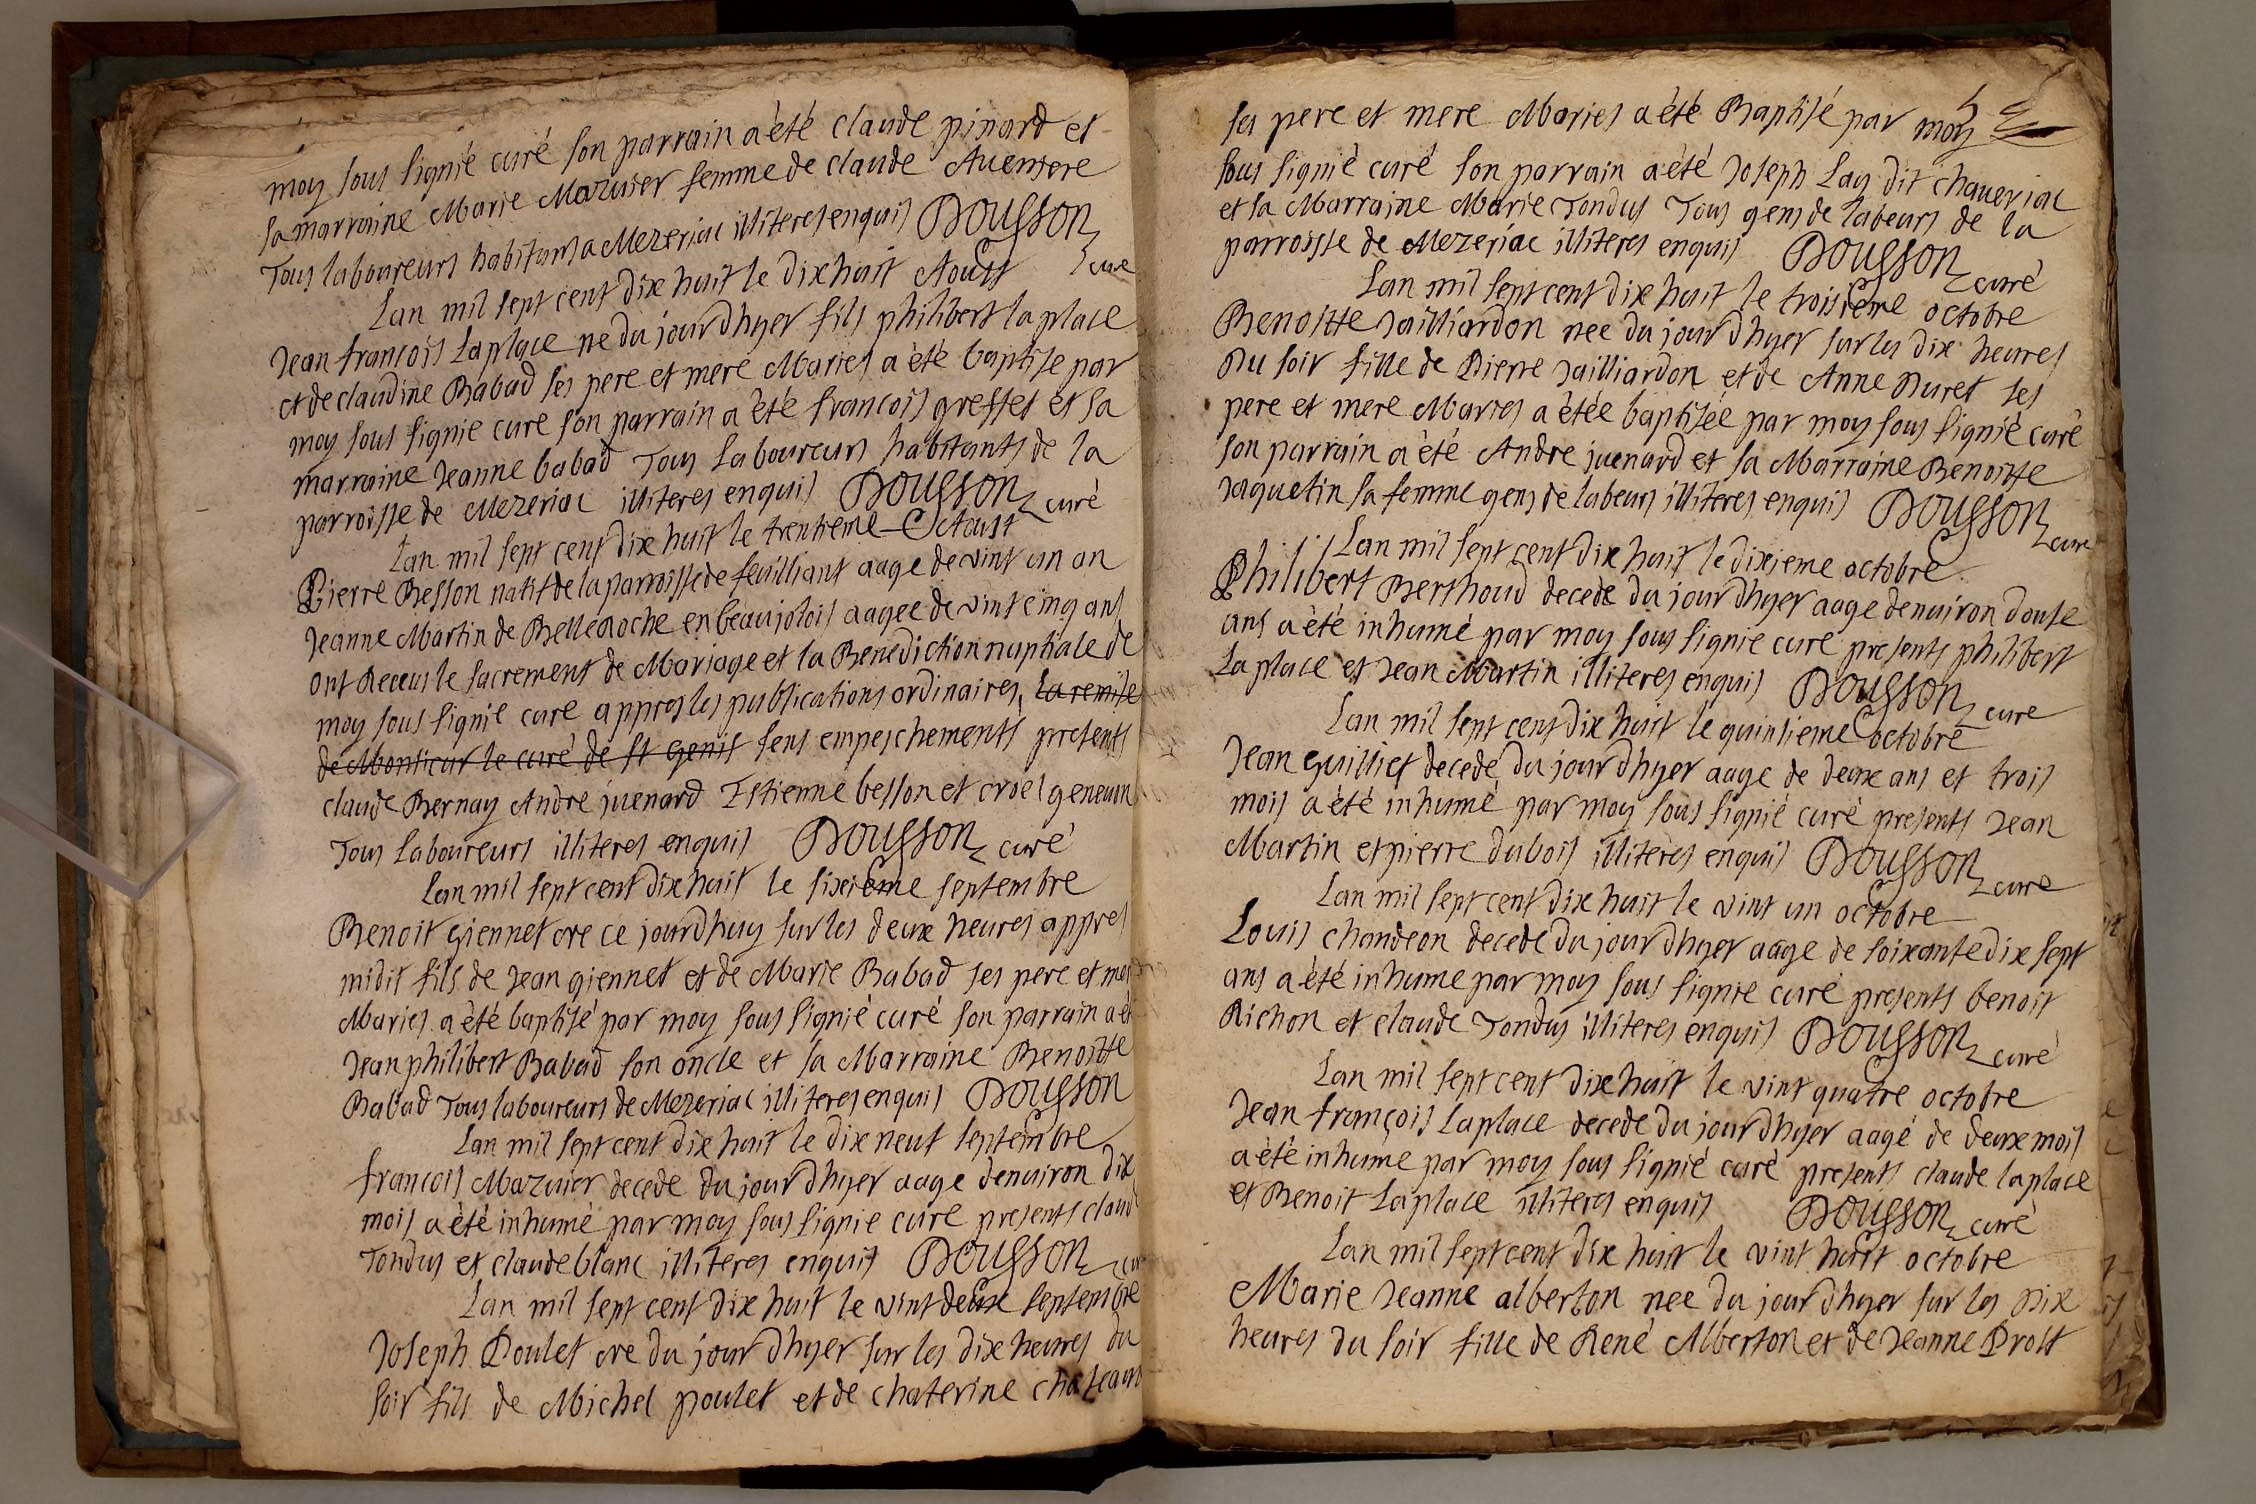 moy sous signié curé son parrain a èté claude pinard et
sa marraine Marie Mazuier femme de claude Auentere
Tous laboureurs habitans a Mezeriac illiteres enquis Dousson
curé
Lan mil sept cent dix huit le dix huit Aoust
Jean françois Laplace ne du jour dhyer fils philibert la place
et de claudine Babad ses pere et mere Maries a èté baptise par
moy sous signie curé son parrain a èté francois greffet et sa
marraine Jeanne babad Tous Laboureurs habitants de la
parroisse de Mezeriac illiteres enquis Dousson curé
Lan mil sept cent dix huit le trentieme Aoust
Pierre Besson natif de la parroisse de feuilliant aage de vint un an
Jeanne Martin de Belleroche en beaujolois aagee de vint cinq ans
ont Receus le sacrement de Mariage et la Benediction nuptiale de
moy sous signié curé appres les publications ordinaires, la remise
de Monsieur le curé de st Genis sens empeschements presents
claude Bernay Andre juenard Estienne besson et croel geneuon
Tous Laboureurs illiteres enquis Dousson curé
Lan mil sept cent dix huit le sixieme septembre
Benoit giennet ore ce jourdhuy sur les deux heures appres
midit fils de Jean giennet et de Marie Babad ses pere et mer
Maries a èté baptisé par moy sous signié curé son parrain a èt
Jean philibert Babad son oncle et sa Marraine Benoitte
Babad Tous laboureurs de Mezeriac illiteres enquis Dousson
Lan mil sept cent dix huit le dix neuf septembre
francois Mazuier decede du jour dhyer aage denuiron dix
mois a èté inhumé par moy sous signie curé presents claud
Tondus et claude blanc illiteres enquis Dousson cu
Lan mil sept cent dix huit le vint deux septembre
Joseph Poulet ore du jour dhyer sur les dix heures du
soir fils de Michel poulet et de chaterine chateau
ses pere et mere Maries a èté Baptisé par moy
sous signié curé son parrain a èté Joseph Lay dit chaueriac
et sa Marraine Marie Tondus Tous gens de labeurs de la
parroisse de Mezeriac illiteres enquis Dousson curé
Lan mil sept cent dix huit le troisieme octobre
Benoitte Jailliardon nee du jour dhyer sur les dix heures
Du soir fille de Pierre Jailliardon et de Anne Duret ses
pere et mere Maries a étée baptisée par moy sous signié curé
son parrain a èté Andre juenard et sa Marraine Benoitte
Jaquetin sa femme gens de labeurs illiteres enquis Dousson curé
Lan mil sept cent dix huit le dixieme octobre
Philibert Berthoud decede du jour dhyer aage denuiron douse
ans a èté inhumé par moy sous signie curé presents philibert
La place et Jean Martin illiteres enquis Dousson curé
Lan mil sept cent dix huit le quinsieme octobre
Jean guilliet decede du jour dhyer aage de deux ans et trois
mois a èté inhumé par moy sous signié curé presents Jean
Martin et pierre dubois illiteres enquis Dousson curé
Lan mil sept cent dix huit le vint un octobre
Louis chandeon decede du jour dhyer aage de soixante dix sept
ans a èté inhume par moy sous signie curé presents benoit
Richon et claude Tondus illiteres enquis Dousson curé
Lan mil sept cent dix huit le vint quatre octobre
Jean françois Laplace decede du jour dhyer aagé de deux mois
a èté inhumé par moy sous signié curé presents claude laplace
et Benoit Laplace illiteres enquis Dousson curé
Lan mil sept cent dix huit le vint huit octobre
Marie Jeanne alberton nee du jour dhyer sur les Dix
heures du soir fille de René Alberton et de Jeanne Prost